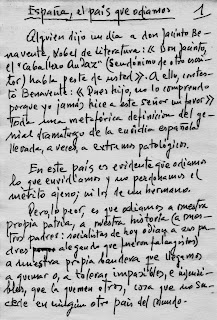 España, el país que odiamos 1
Alguien dijo un día a don Jacinto Be-
navente, Nobel de Literatura: «Don Jacinto,
el "Caballero Audaz" (Seudónimo de otro escri-
tor) habla peste de usted». A ello, contes-
tó Benavente: «Pues hijo, no lo comprendo
porque yo jamás hice a este señor un favor»
Toda una metafórica definición del ge-
nial dramaturgo de la envidia española
llevada, a veces, a extremos patológicos.
En este país es evidente que odiamos
lo que envidiamos y no perdonamos el
mérito ajeno; ni los de un hermano.
Pero lo peor, es que odiamos a nuestra
propia patria, a nuestra historia (a nues-
tros padres: socialistas de hoy odian a sus pa-
dres alegando que fueron falangistas)
a nuestra propia bandera que llegamos
a quemar o, a tolerar impasibles, e
que la quemen otros, cosa que no su-
cede en ningún otro país del mundo.